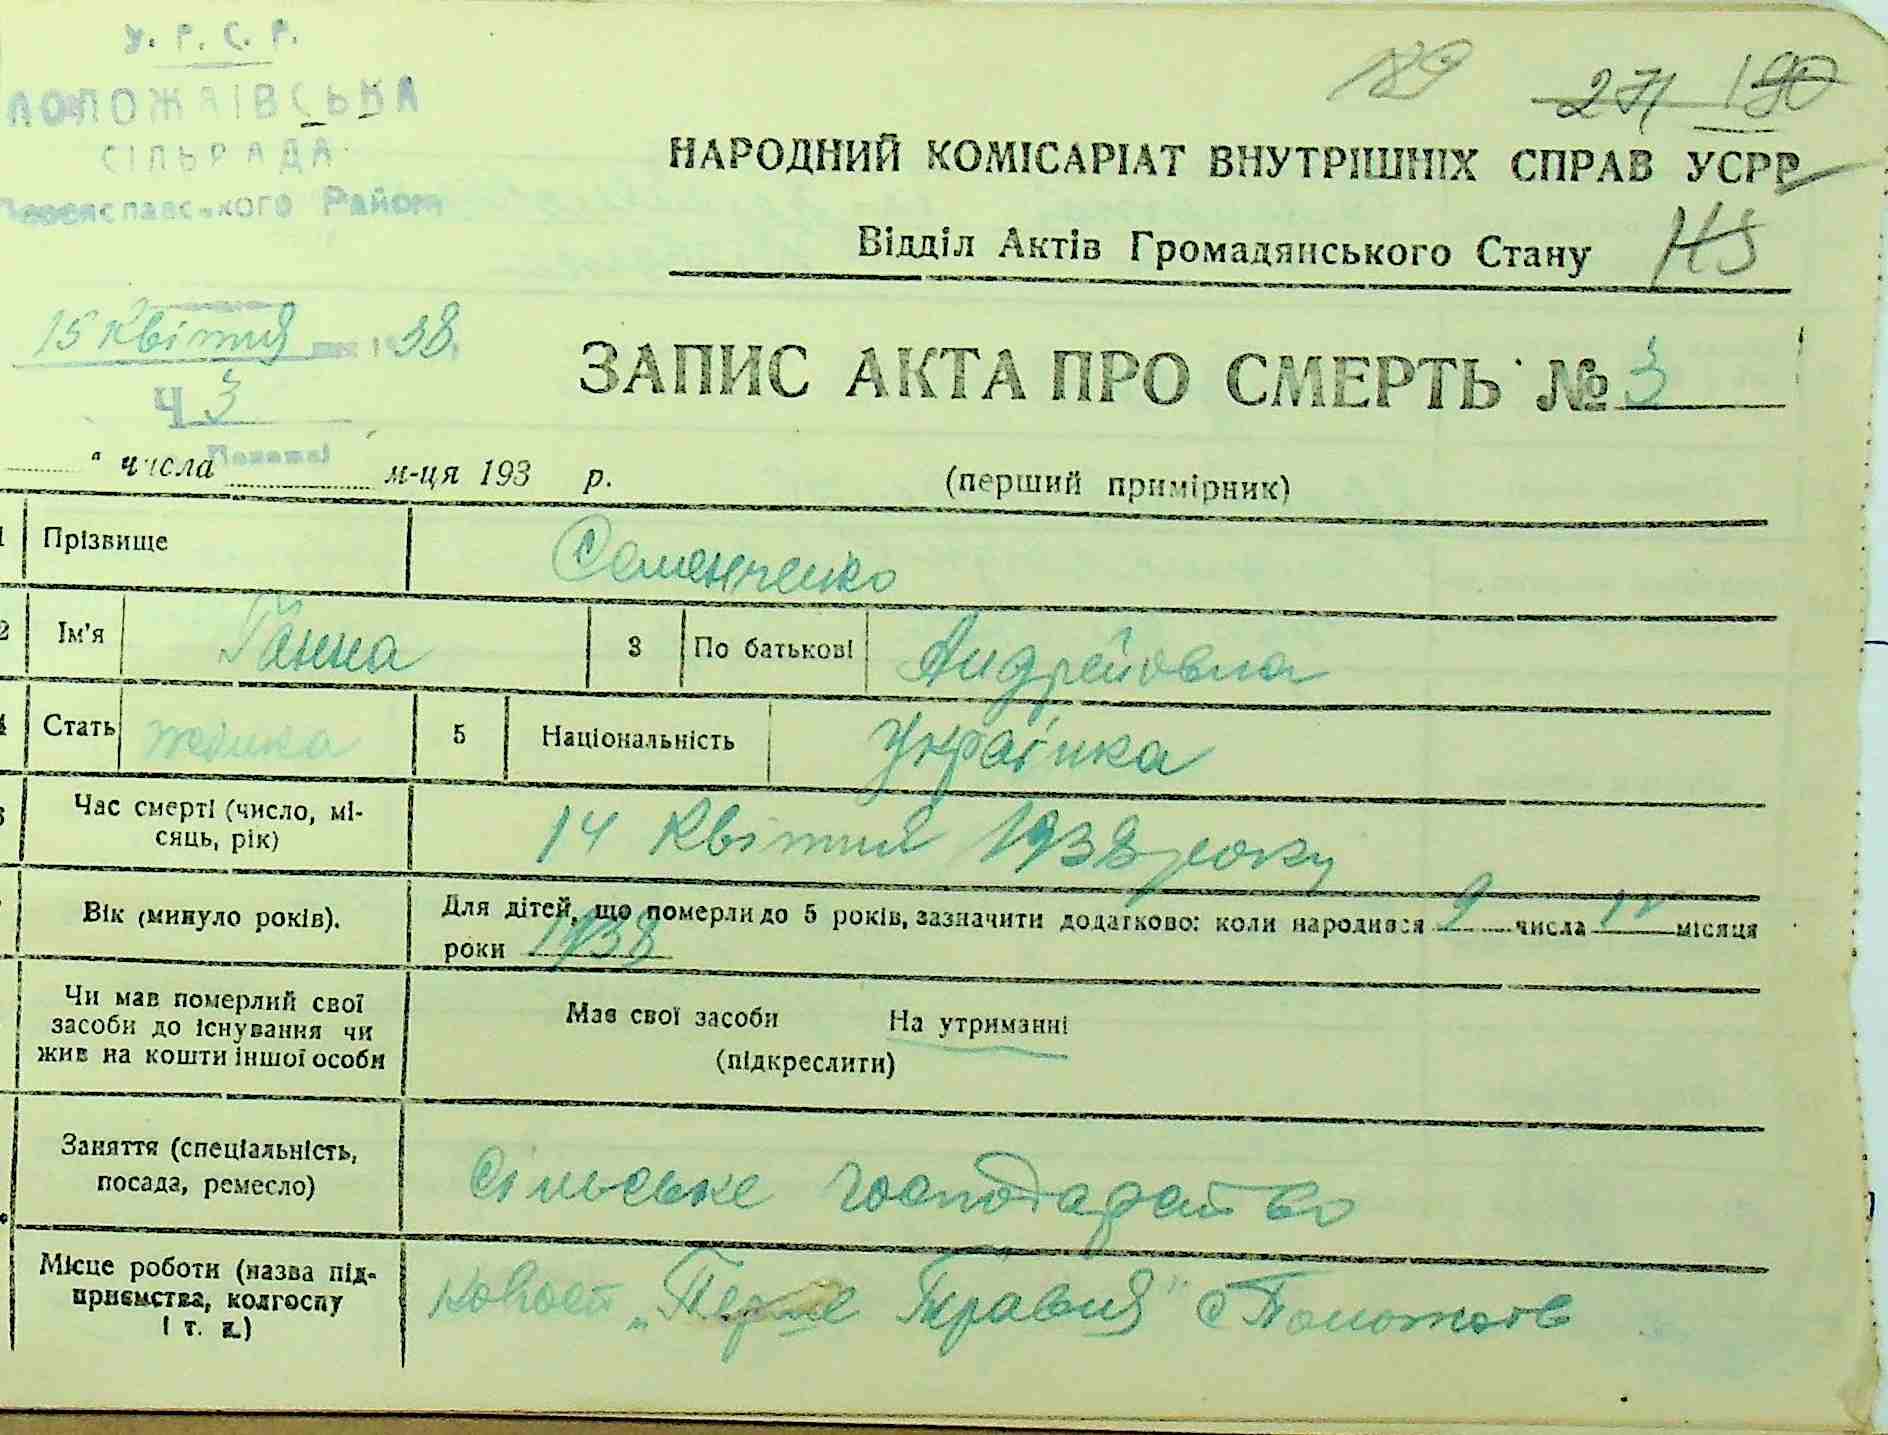 У. Р. С. Р.
ПОЛОЖАЇВСЬКА
СІЛЬРАДА
Переяславського Району
189 271 190
НАРОДНИЙ КОМІСАРІАТ ВНУТРІШНІХ СПРАВ УСРР
Відділ Актів Громадянського Стану
15 Квітня 1938
Ч 3
ЗАПИС АКТА ПРО СМЕРТЬ № 3
" числа м-ця 193 р. (перший примірник)
Прізвище Семенченко
2 Ім'я Ганна 3 По батькові Андрейовна
4 Стать жінка 5 Національність Українка
Час смерті (число, мі-
сяць, рік) 14 Квітня 1938 року
Вік (минуло років). Для дітей, що померли до 5 років, зазначити додатково: коли народився 9 числа місяця
роки 1938
Чи мав померлий свої
засоби до існування чи
жив на кошти іншої особи
Має свої засоби На утриманні
(підкреслити)
Заняття (спеціальність,
посада, ремесло) Сільське господарство
Місце роботи (назва під-
приємства, колгоспу
і т. д.)
"Перше Травня" с